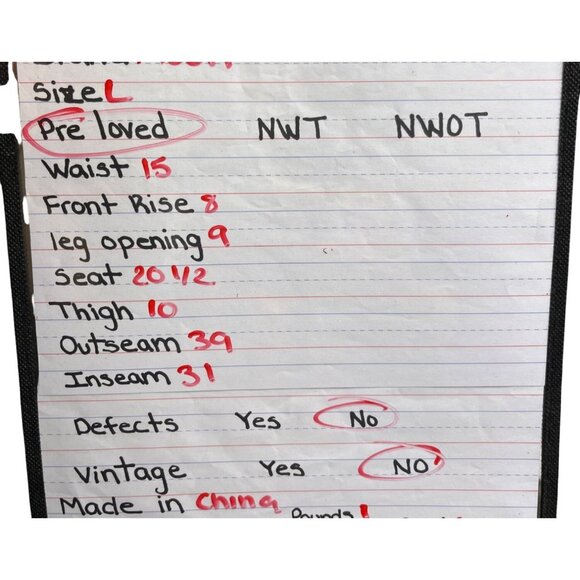 Size L
Pre loved NWT NWOT
Waist 15
Front Rise 8
leg opening 9
Seat 20 1/2
Thigh 10
Outseam 39
Inseam 31
Defects Yes No
Vintage Yes No
Made in China Pounds 1